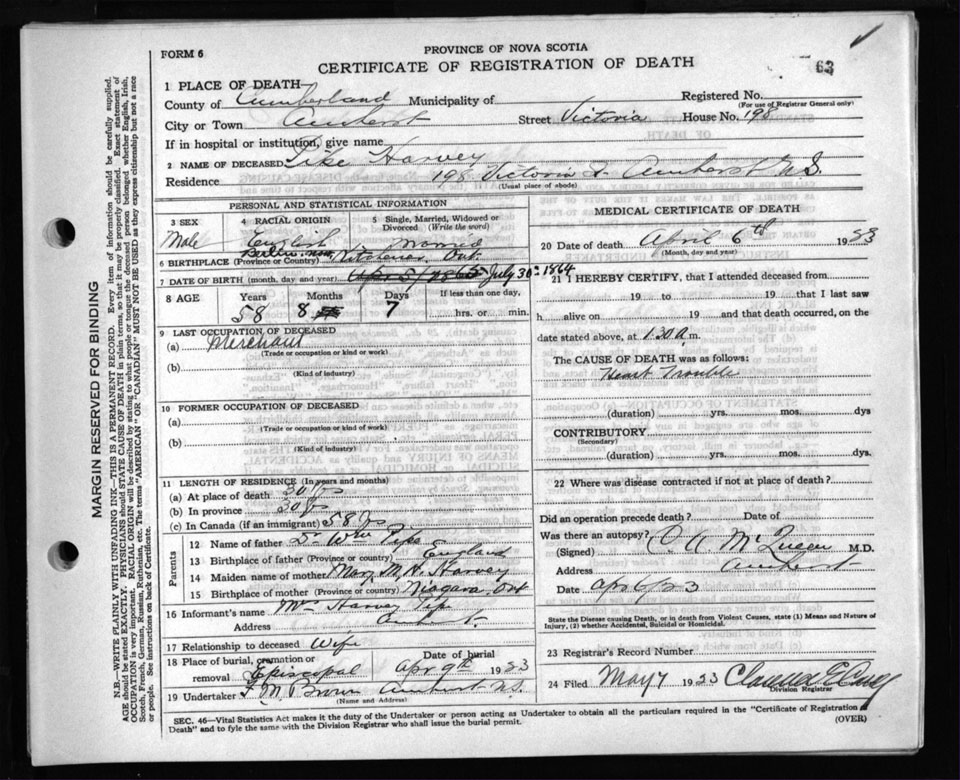 FORM 6
PROVINCE OF NOVA SCOTIA
CERTIFICATE OF REGISTRATION OF DEATH
63
1 PLACE OF DEATH—
County of Cumberland Municipality of
Registered No.
(For use of Registrar General only)
City or Town Amherst Street Victoria House No. 198
If in hospital or institution, give name
2 NAME OF DECEASED Pike Harvey
Residence 198 Victoria St Amherst N.S.
(Usual place of abode)
PERSONAL AND STATISTICAL INFORMATION
3 SEX 4 RACIAL ORIGIN 5 Single, Married, Widowed or Divorced (Write the word)
Male English Married
6 BIRTHPLACE (Province or Country) Berlin now Kitchener Ont.
7 DATE OF BIRTH (month, day and year) July 30th 1864
8 AGE Years Months Days If less than one day,
58 8 7 hrs. or min.
9 LAST OCCUPATION OF DECEASED
(a) Merchant
(Trade or occupation or kind or work)
(b)
(Kind of industry)
10 FORMER OCCUPATION OF DECEASED
(a)
(Trade or occupation or kind of work)
(b)
(Kind of industry)
11 LENGTH OF RESIDENCE (In years and months)
(a) At place of death 30 yrs
(b) In province 30 yrs
(c) In Canada (if an immigrant) 58 yrs
Parents
12 Name of father Dr Wm Pipe
13 Birthplace of father (Province or country) England
14 Maiden name of mother Mary M. H. Harvey
15 Birthplace of mother (Province or country) Niagara, Ont
16 Informant's name Mrs Harvey Pipe
Address Amherst
17 Relationship to deceased Wife
18 Place of burial, cremation or removal Episcopal Apr 9th 1923
Date of burial
19 Undertaker F M Brown Amherst N.S.
(Name and Address)
MEDICAL CERTIFICATE OF DEATH
20 Date of death April 6th 1923
(Month, day and year)
21 I HEREBY CERTIFY, that I attended deceased from
19 to 19 that I last saw
h alive on 19 and that death occurred, on
date stated above, at 1.30 a m.
The CAUSE OF DEATH was as follows:
Heart Trouble
(duration) yrs. mos. dys
CONTRIBUTORY
(Secondary)
(duration) yrs. mos. dys.
22 Where was disease contracted if not at place of death?
Did an operation precede death? Date of
Was there an autopsy?
(Signed) C. A. McQueen M.D.
Address Amherst
Date Apr 6/23
State the Disease causing Death, or in death from Violent Causes, state (1) Means and Nature of Injury, (2) whether Accidental, Suicidal or Homicidal.
23 Registrar's Record Number
24 Filed May 7 1923 Clarence E
Division Registrar
SEC. 46—Vital Statistics Act makes it the duty of the Undertaker or person acting as Undertaker to obtain all the particulars required in the "Certificate of Registration of Death" and to fyle the same with the Division Registrar who shall issue the burial permit.
(OVER)
MARGIN RESERVED FOR BINDING
N.B.—WRITE PLAINLY WITH UNFADING INK—THIS IS A PERMANENT RECORD. Every item of information should be carefully supplied.
AGE should be stated EXACTLY. PHYSICIANS should STATE CAUSE OF DEATH in plain terms, so that it may be properly classified. Exact statement of
OCCUPATION is very important. RACIAL ORIGIN will be described by stating to what people or tongue the deceased person belonged whether English, Irish,
Scotch, French, German, Russian, Ruthenian, etc. The terms "AMERICAN" or "CANADIAN" MUST NOT BE USED as they express citizenship but not a race
or people. See instructions on back of Certificate.